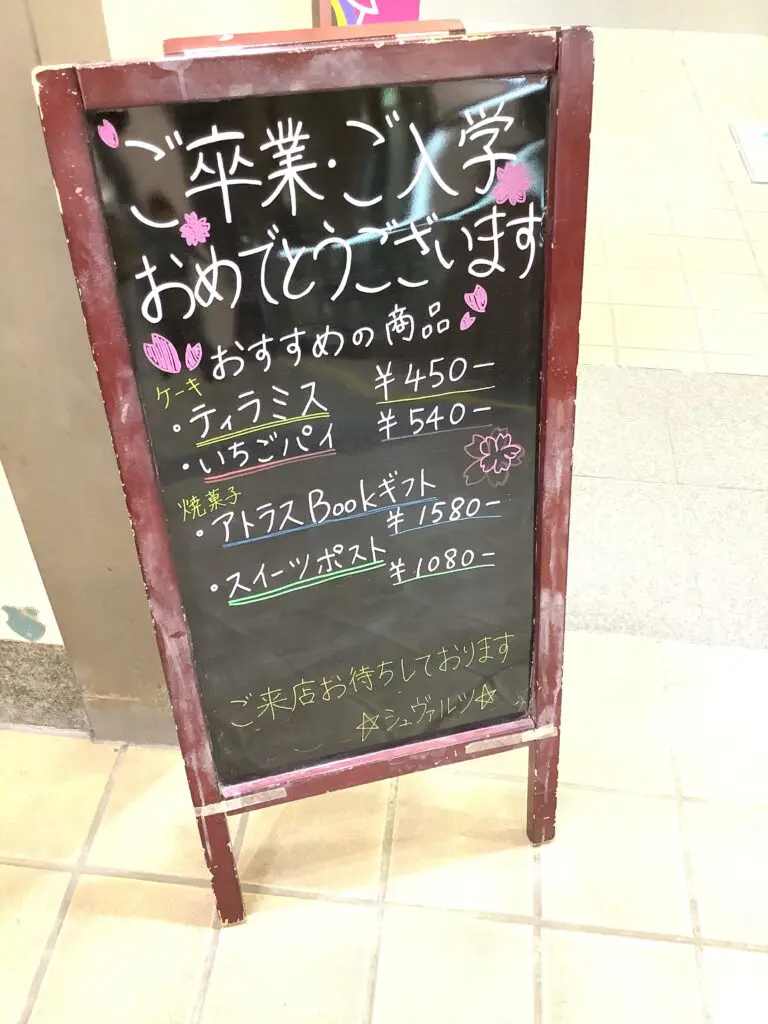 ご卒業・ご入学
おめでとうございます
おすすめの商品
ケーキ
・ティラミス ¥450-
・いちごパイ ¥540-
焼菓子
・アトラスBookギフト
¥1580-
・スイーツポスト ¥1080-
ご来店お待ちしております
☆シュヴァルツ☆